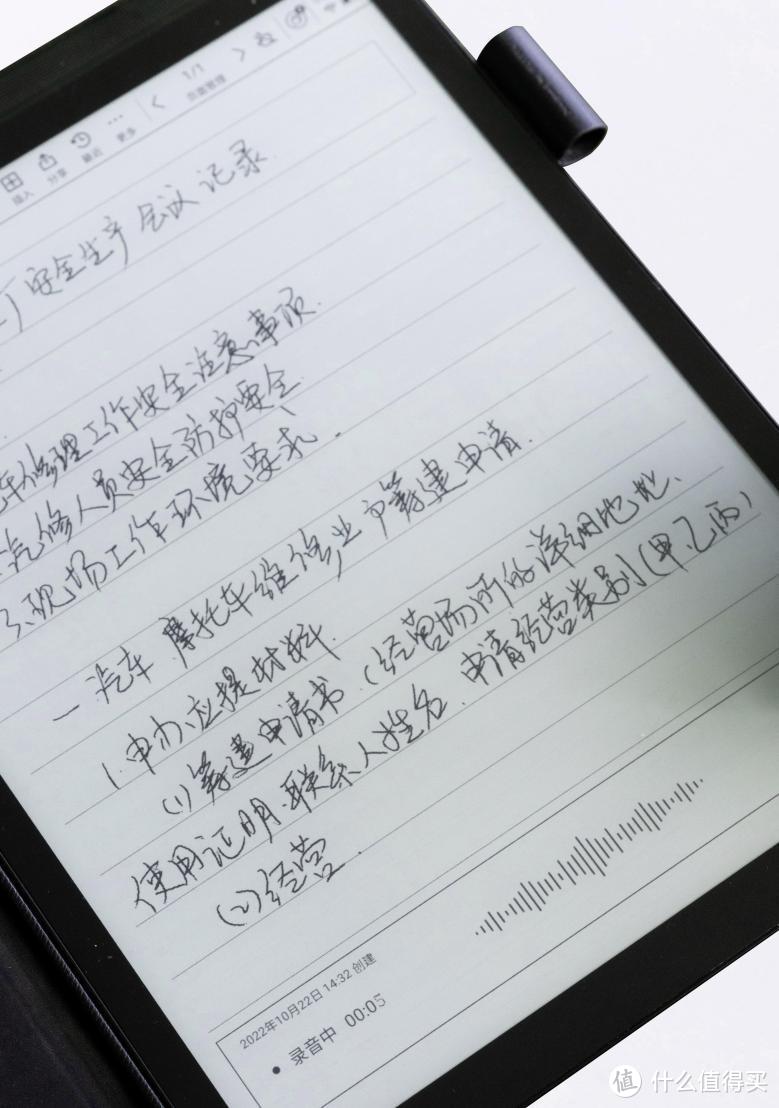 1/1
插入 分享 最近 更多 页面管理
安全生产会议记录
车修理工作安全注意事项.
汽修人员安全防护安全
3.现场工作环境要求.
一汽车 摩托车维修业户筹建申请.
1.申办应提材料.
(1)筹建申请书.(经营场所的详细地址、
使用证明.联系人姓名.申请经营类别(甲.乙.丙)
(2)经营.
2022年10月22日 14:32 创建
录音中 00:05
值 什么值得买